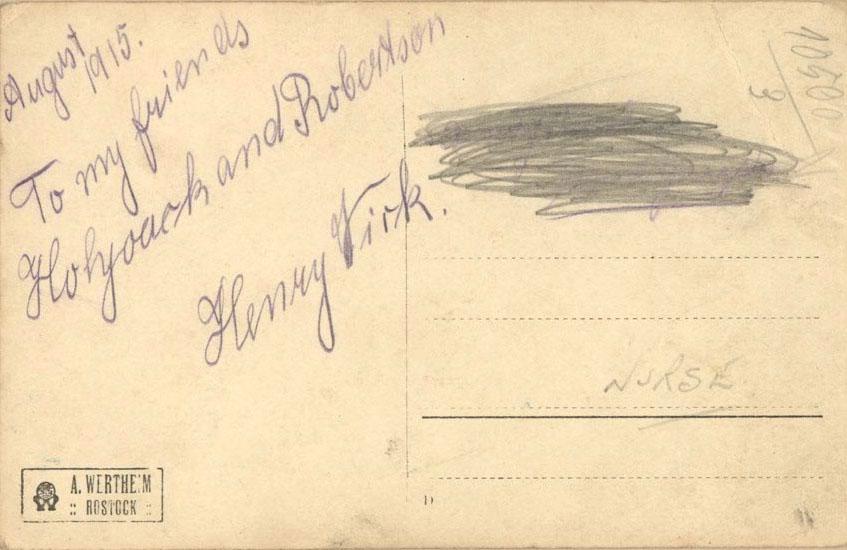 August
1915.
To my friends
Holyoack and Robertson
Henry Vick.
10500
3
NURSE
A. WERTHEIM
:: ROSTOCK ::
D